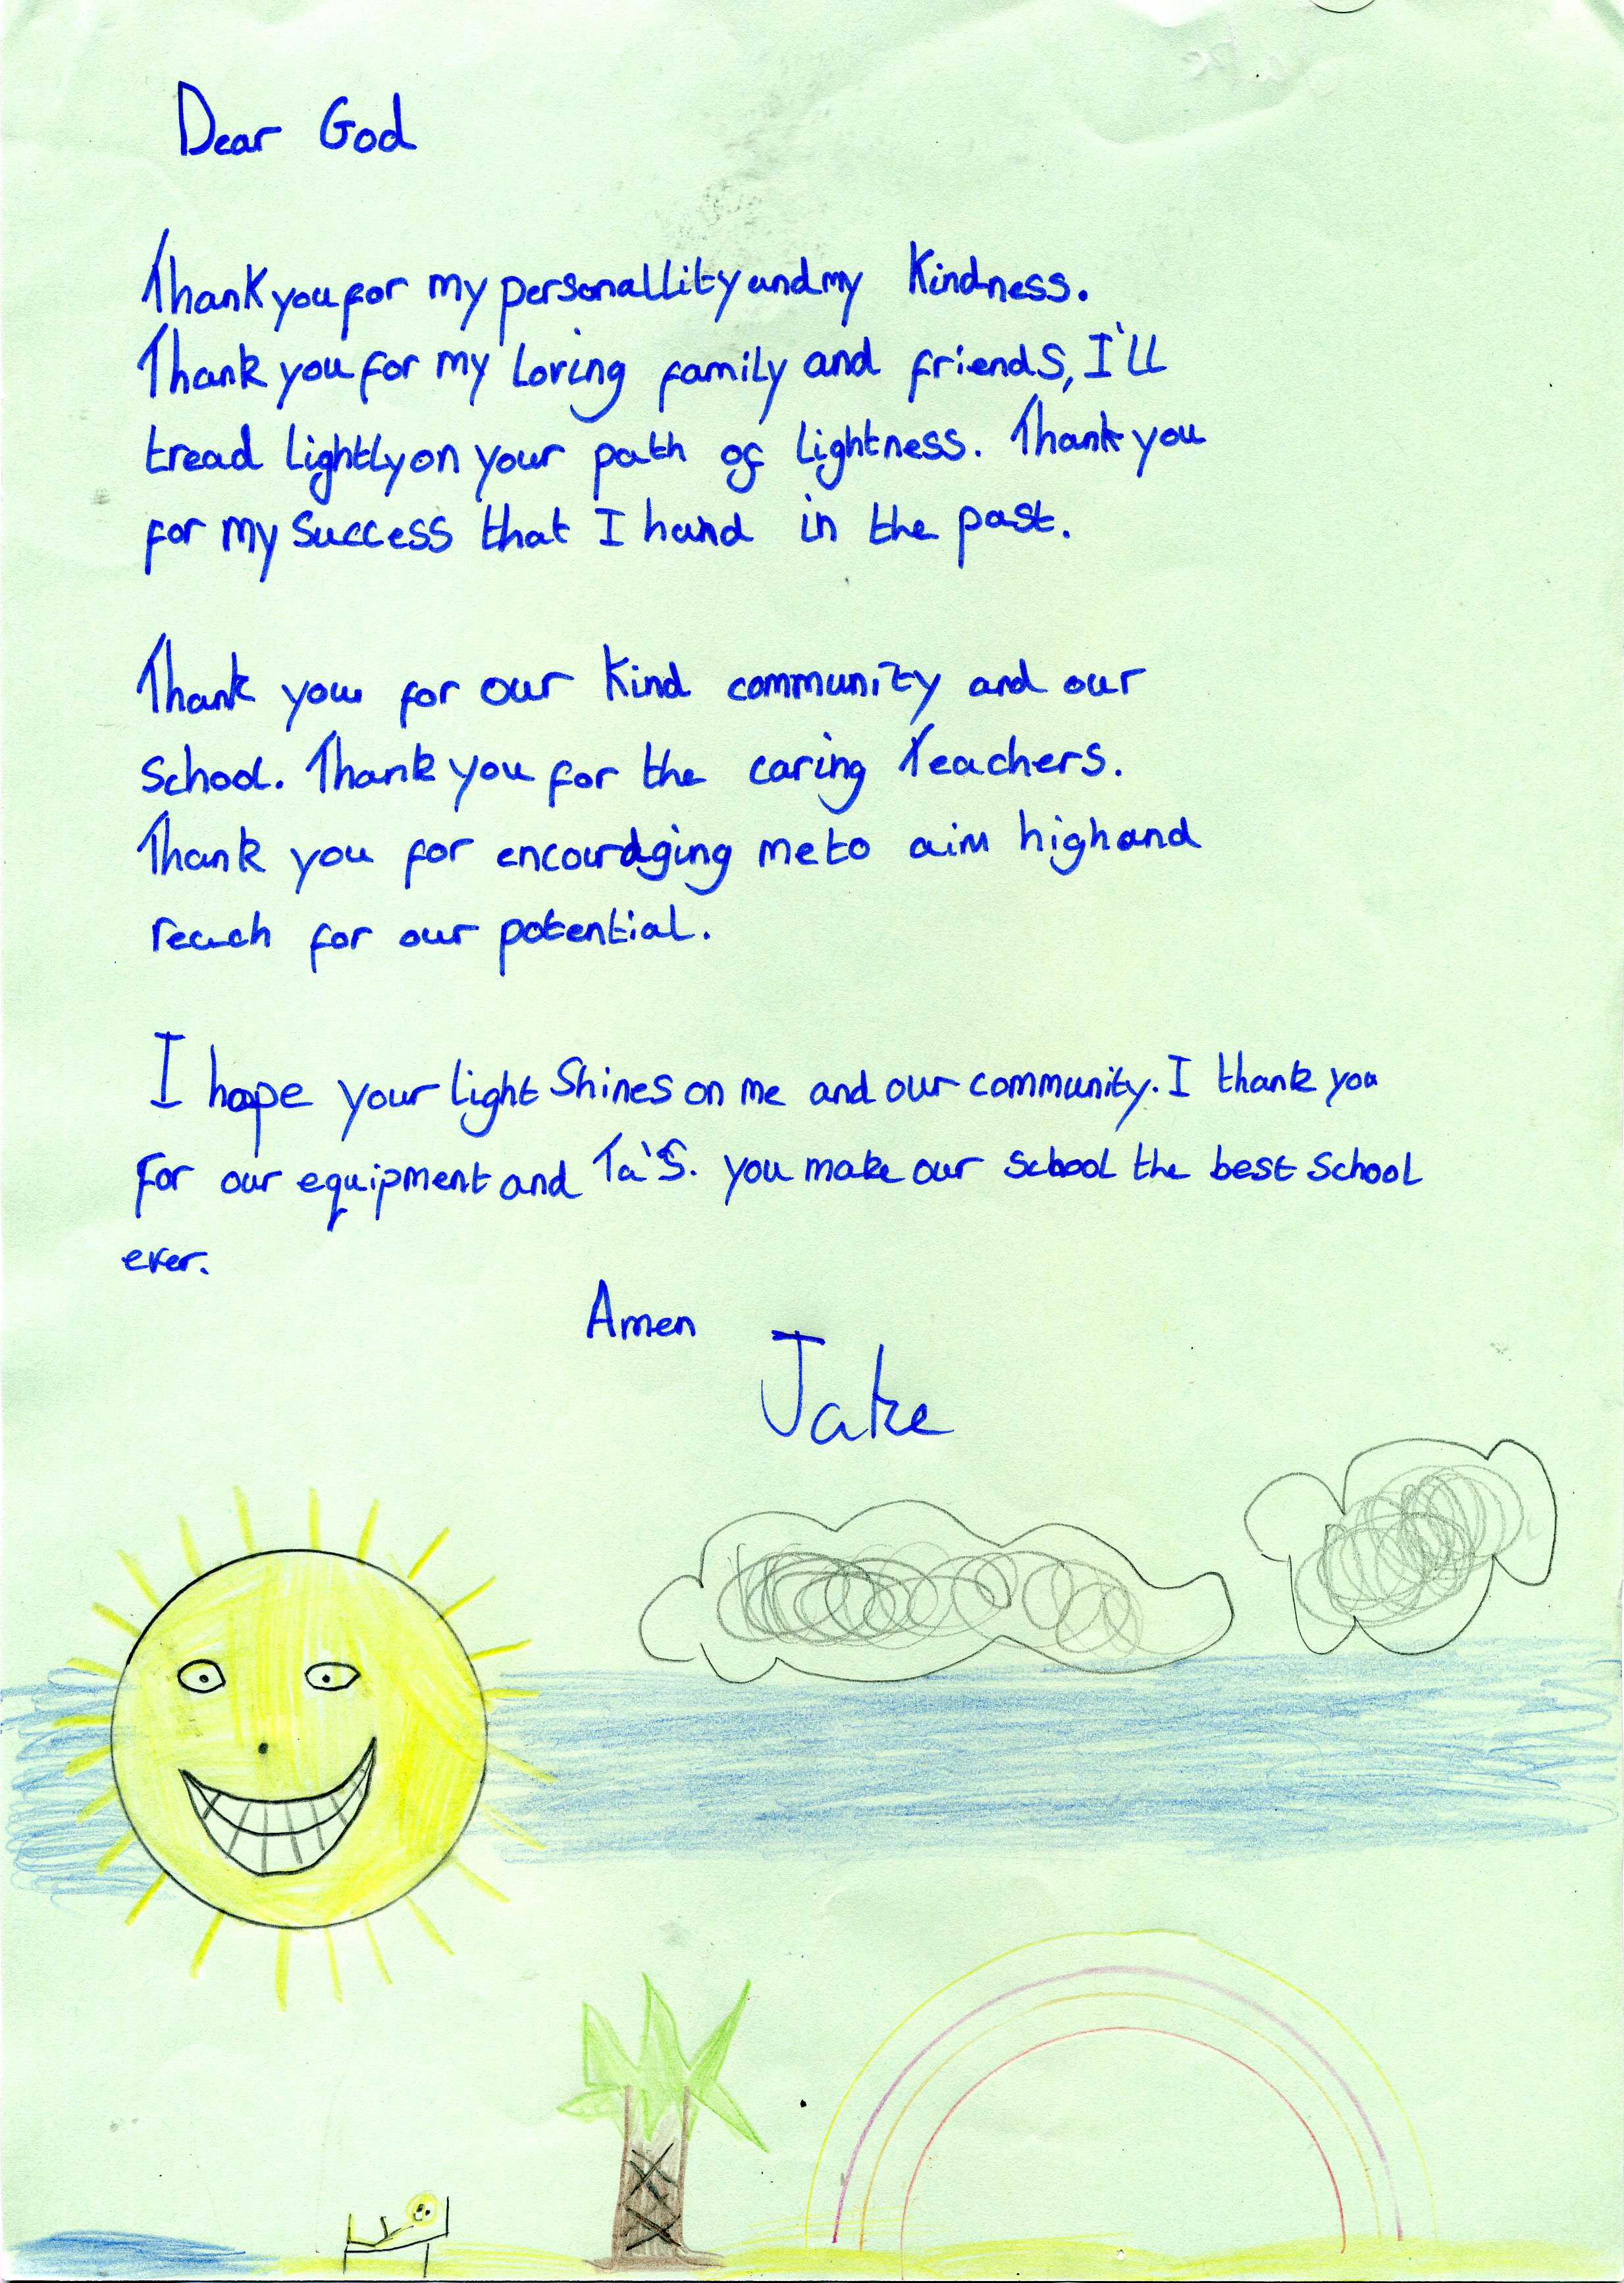 Dear God
Thank you for my personallity and my Kindness.
Thank you for my loving family and friends, I'll
tread lightly on your path of lightness. Thank you
for my success that I hand in the past.
Thank you for our kind community and our
School. Thank you for the caring Teachers.
Thank you for encouraging me to aim high and
reach for our potential.
I hope your light Shines on me and our community. I thank you
For our equipment and Ta'S. you make our school the best School
ever.
Amen
Jake